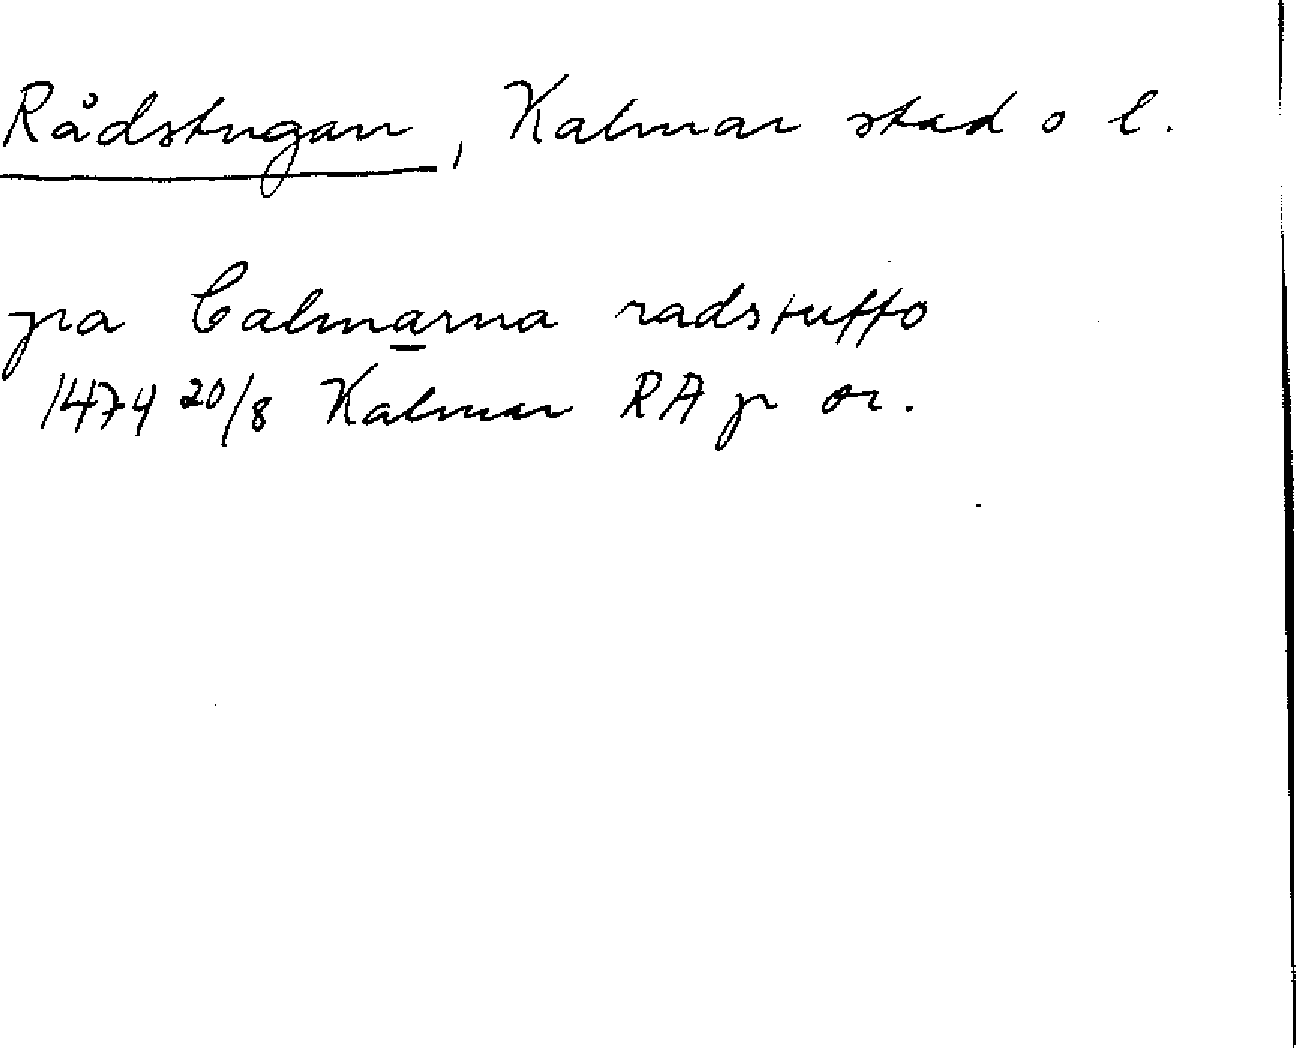 Rådstugan, Kalmar stad o l.
pa Calmarna radstuffo
1474 20/8 Kalmar RA p or.